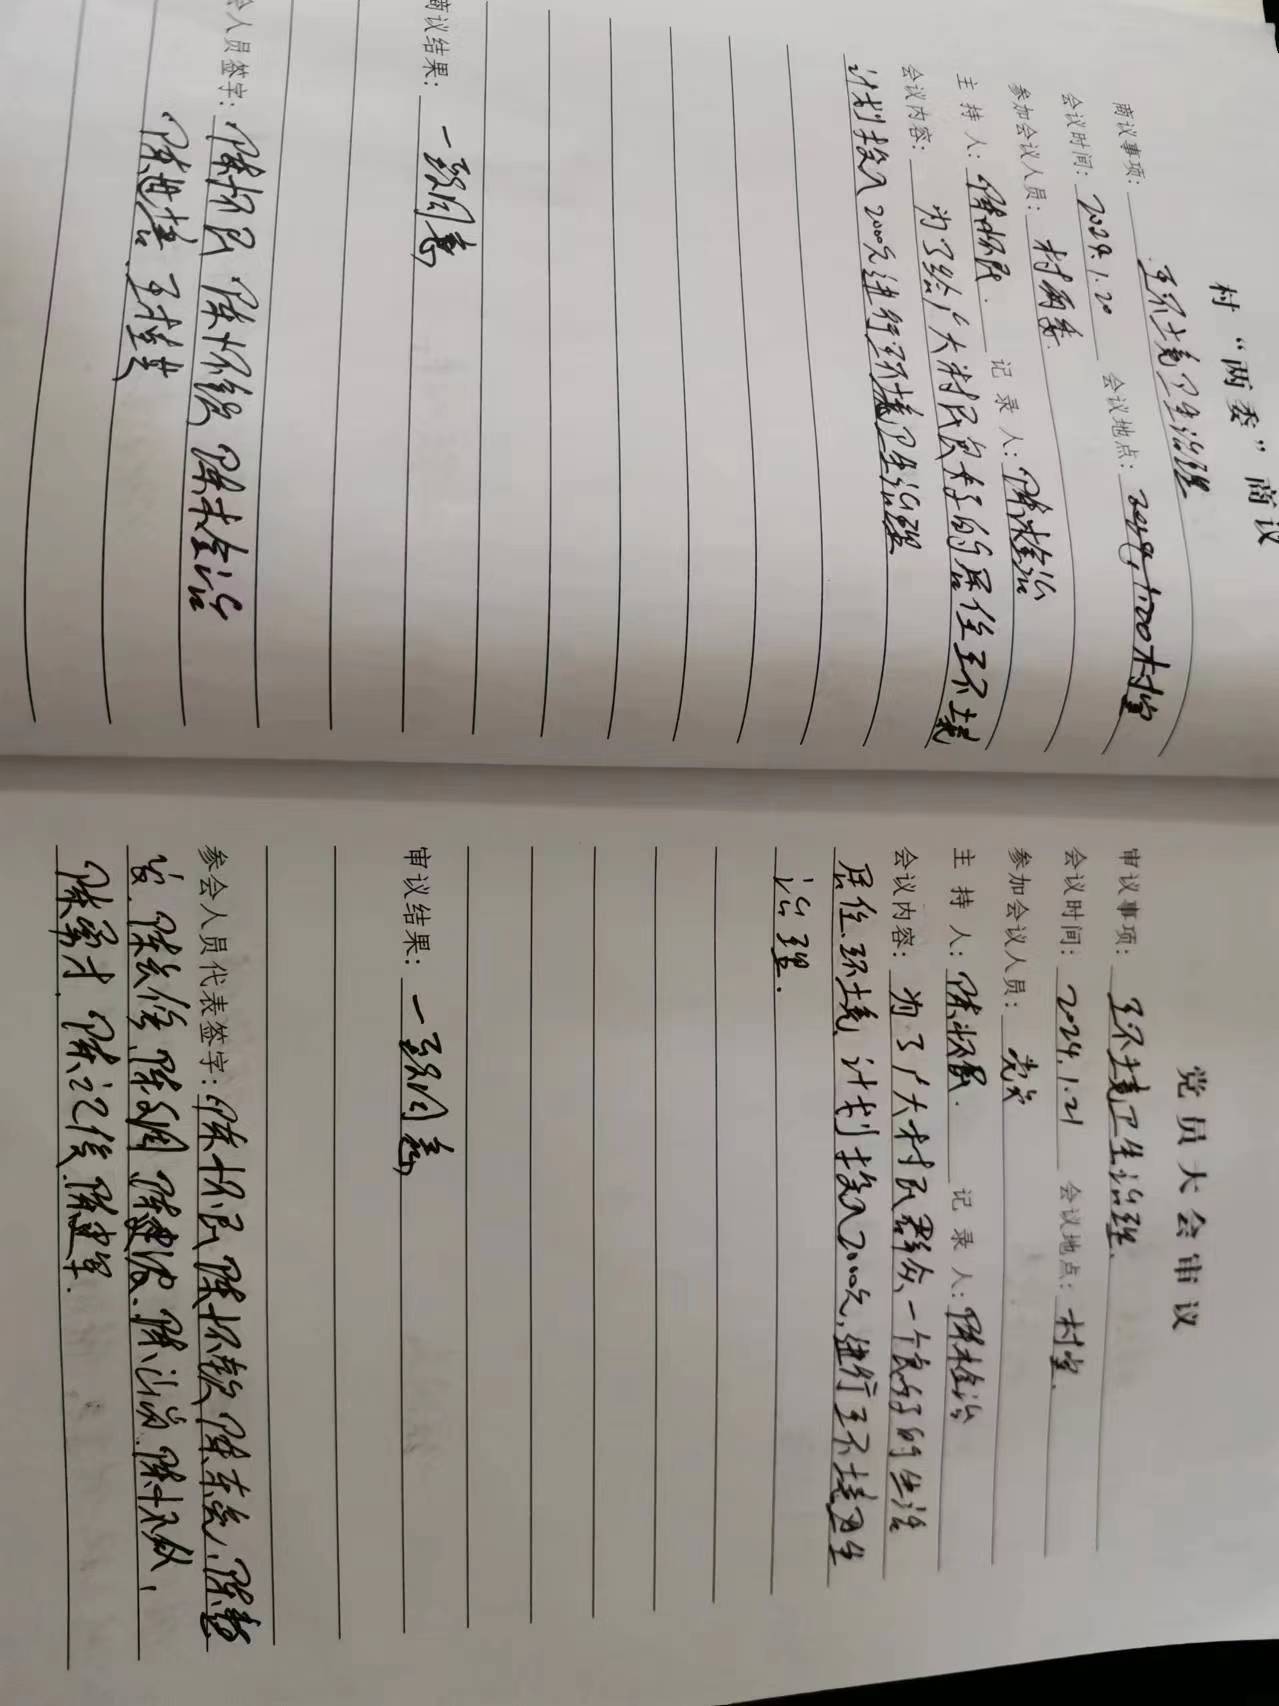 村“两委”商议
商议事项：环境卫生治理
会议时间：2024.1.20 会议地点：村室
参加会议人员：村两委
主持人：陈怀民. 记录人：陈检治
会议内容：为了给广大村民良好的居住环境
计划投入2000元进行环境卫生治理
商议结果：一致同意
会人员签字：陈怀民 陈怀 陈
陈 王
党员大会审议
审议事项：环境卫生治理.
会议时间：2024.1.21 会议地点：村室.
参加会议人员：党员
主持人：陈怀民. 记录人：陈检治
会议内容：为了广大村民群众一个良好的生活
居住环境，计划投入2000元，进行环境卫生
治理.
审议结果：一致同意
参会人员代表签字：陈怀民 陈怀 陈 陈
陈 陈 陈建 陈 陈
陈 陈 陈建军.